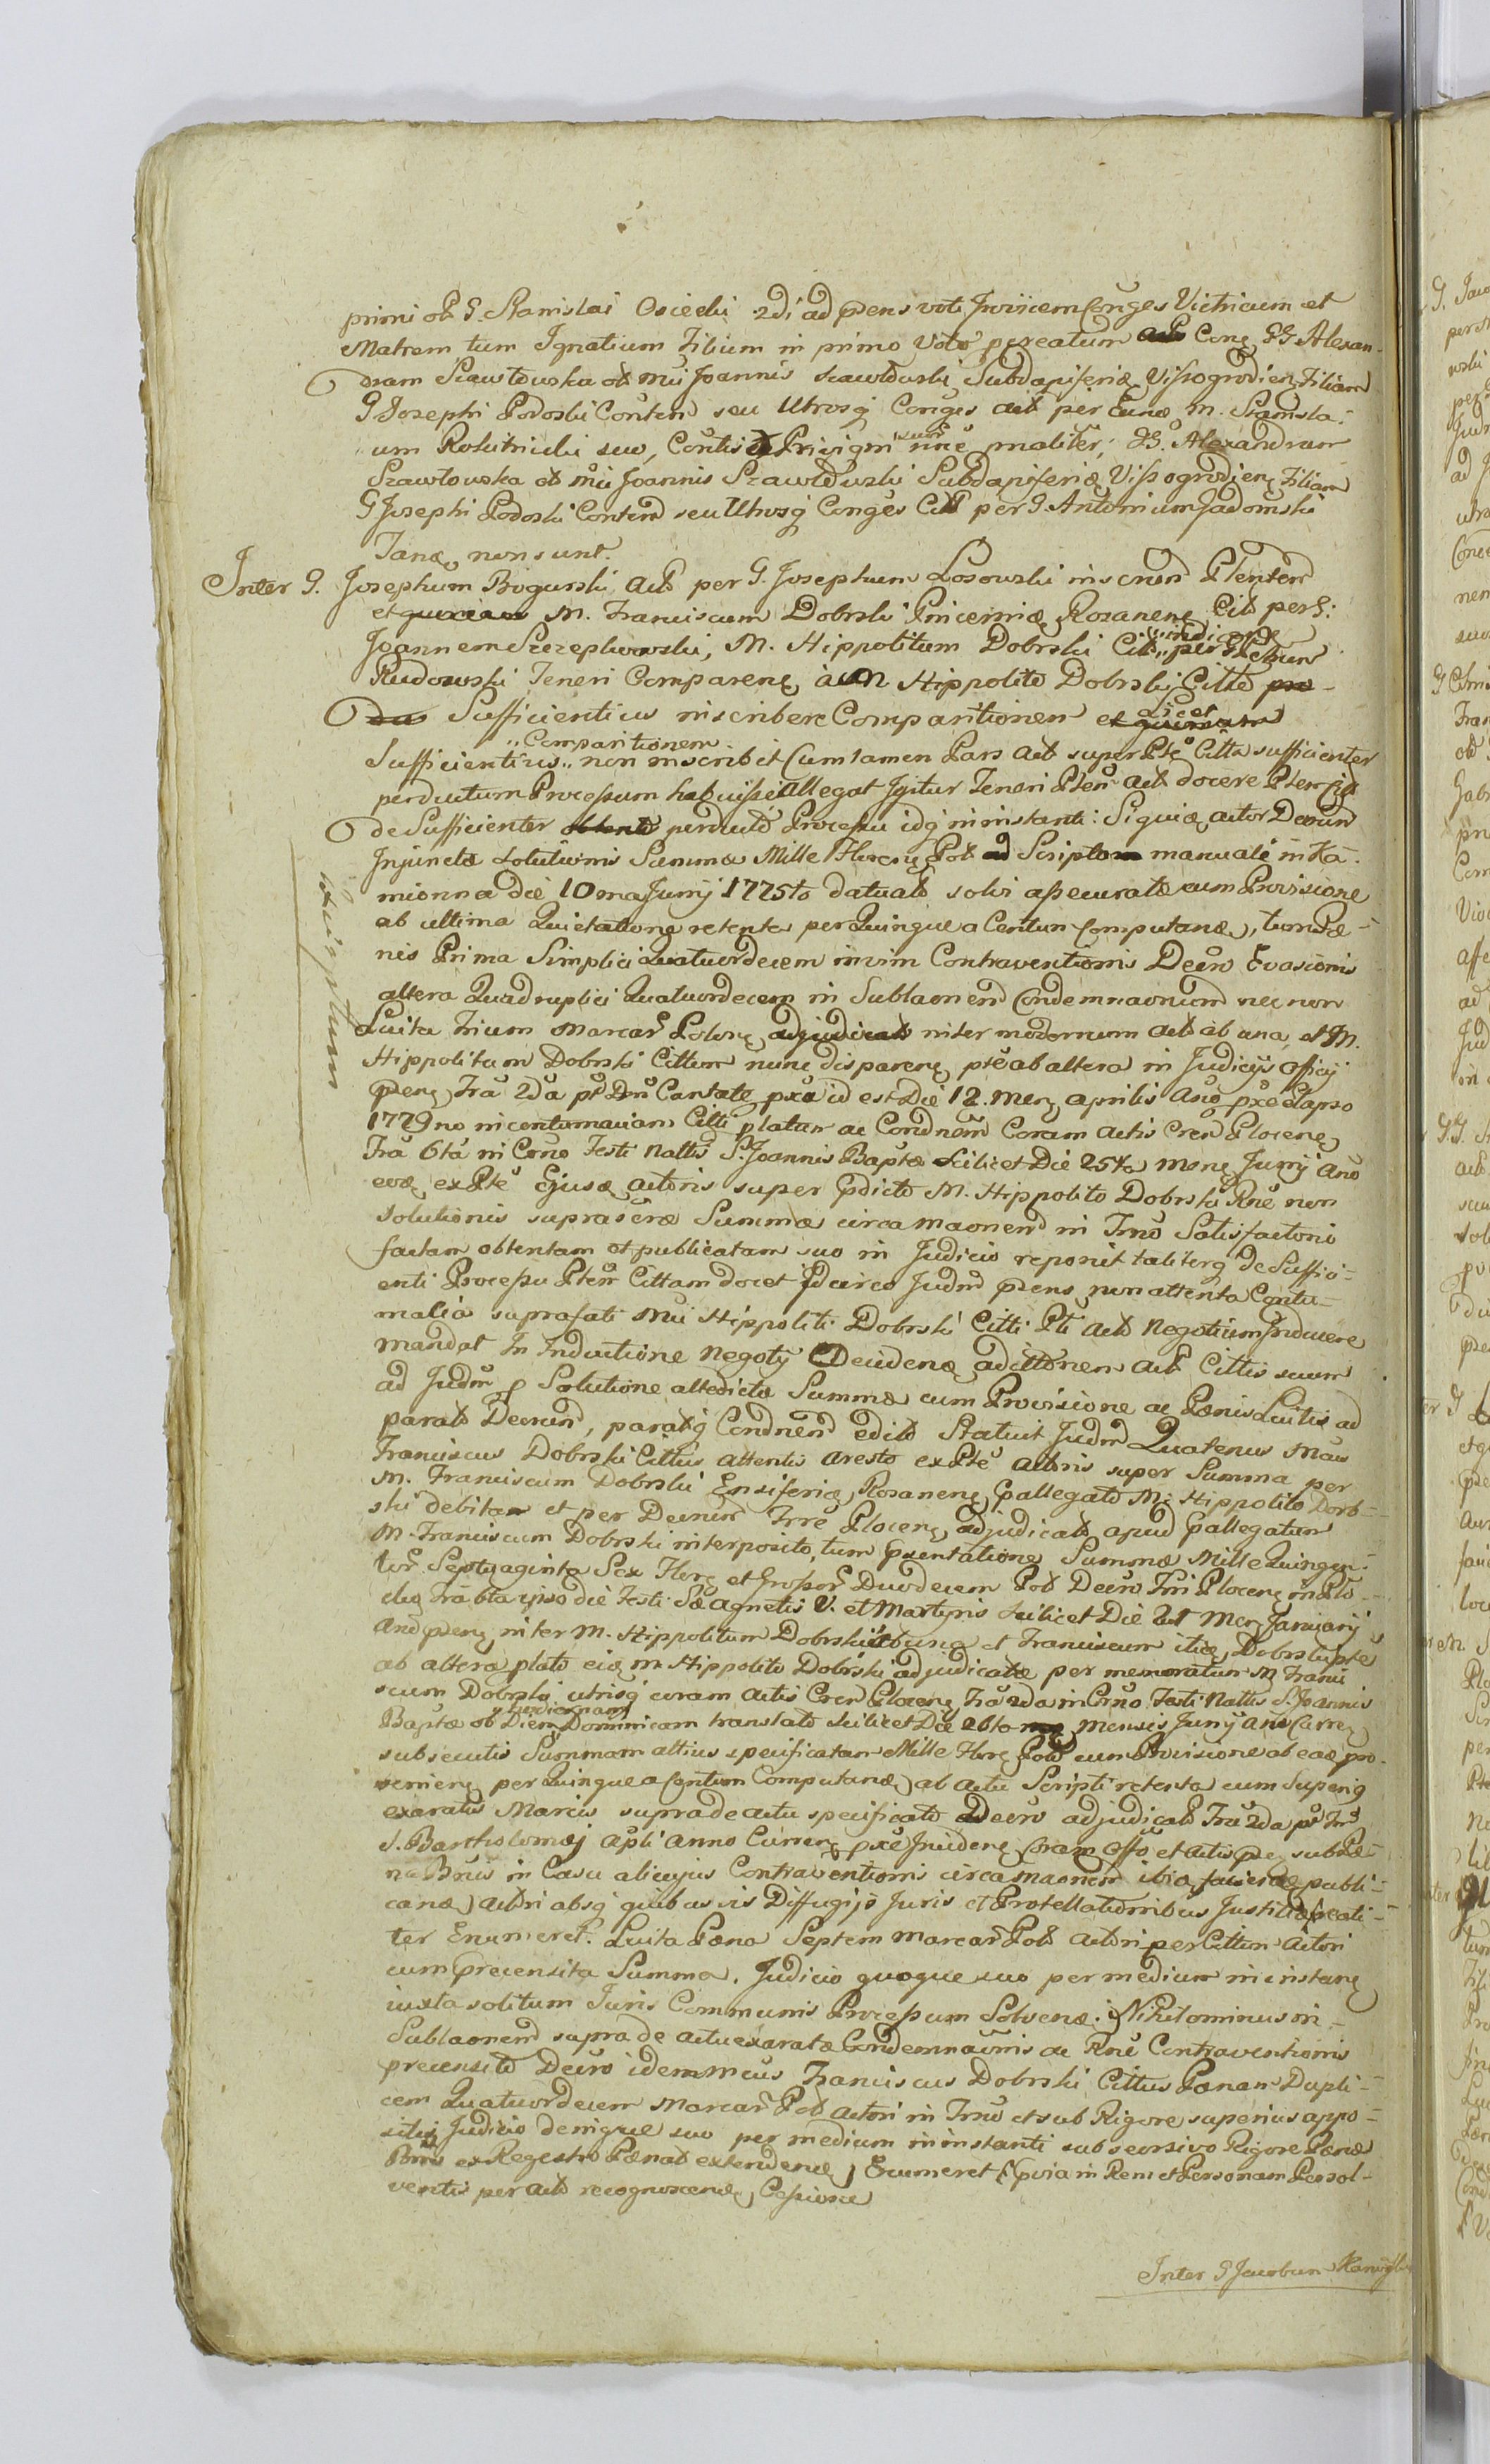 primi ot G. Stanislai Osiecki 2di ad prns voti Invicem Conges Victricum et
Matrem tum Ignatium Filium in primo Voto pcreatum Cong GG Alexan-
dram Szawłowska ot Mci Joannis Szawłowski Subdapiferidæ Vissogrodien Filiam
G Josephi Podoski Conten seu Utrosq Conges act per M. Stanisla-
um Rokitnicki suo, Privigni nne pnaliter, GG. Alexandram
Szawłowska ot Mci Joannis Szawłowski Subdapiferidæ Vissogrodien Filiam
G Josephi Podoski Conten seu Utrosq Conges Citt per G. Antonium Jadomski
non sunt.
Inter G. Josephum Bogurski act per G. Josephum Łosowski Plenten
et M. Franciscum Dobrski Pincernidæ Rozanen Citt per G:
Joannem Szczepkowski, M. Hippolitum Dobrski Citt per
Rudowski Teneri Comparen a M Hippolito Dobrski Citto
Sufficientius inscribere Comparitionem et licet
Sufficientius „Comparitionem non inscribit Cum tamen Pars act super Pte Citta sufficienter
perductum Processum habuisse allegat Igitur Teneri Ptem act docere Ptem
de Sufficienter perducto Processu idq in instanti: Siquidæ actor Decum
Injunctæ solutionis Summæ Mille Floren Pol Scripto manuali in Ka-
mionna die 10ma Junij 1775to datuato solvi assecuratæ cum Provisione
ab ultima Quietatione retenta per Quinque a Centum Computan, tum Pæ-
nis Prima Simplici Quatuordecem in vim Contraventionis Decro Evasionis
altera Quadruplici Quatuordecem in Sublaonem Condemnaonum nec non
Luita trium Marcar Polon adjudicat inter modernum act ab una, et M.
Hippolitum Dobrski Cittum nunc disparen pte ab altera in Judicijs Officij
pren Fra 2da pt Dnc Cantate pxa id est Die 12. Men Aprilis Ano pxe elapso
1779no in contumaciam Citti platum ac Condnem Coram actis Cren Plocen
Fra 6ta in Crno Festi Nattis S. Joannis Baptæ scilicet Die 25ta Mens Junij Ano
eod ex Pte Ejusd actoris super pdicto M. Hippolito Dobrski Rne non
Solutionis suprascræ Summæ circa maonem in Trno Satisfactoni
factam obtentam et publicatam suo in Judicio reponit taliterq de Suffici-
enti Processu Ptem Cittam docet Idcirco Judm prens non attenta Contu-
malia suprafati Mci Hippoliti Dobrski Citti Pti act Negotium Inducere
mandat In Inductione Negotij Deciden ad ittonem act Cittis suum
ad Judm p Solutione altedictæ Summæ cum Provisione ac Pænis Luitis ad
parato Decren, paratoq Condnen edito Statuit Judm Quatenus Mcus
Franciscus Dobrski Cittus attentis aresto ex Pte actoris super Summa per
M. Franciscum Dobrski Ensiferidæ Rozanen pallegato M: Hippolito Dobr-
ski debitam et per Decrum Trre Plocen adjudicato apud pallegatum
M. Franciscum Dobrski interposito, tum pxentatione Summæ Mille Quingen-
tor Septuaginta Sex Floren et Grossor Duodecem Pol Decro Trri Plocen
Fra 6ta ipso die Festi Sæ Agnetis V. et Martyris scilicet Die 21 Men Januarij
Ano pren inter M. Hippolitum Dobrski ab una et Franciscum itidæ Dobrski pte
ab altera plato eid M Hippolito Dobrski adjudicatæ per memoratum M Franci
scum Dobrski utrisq coram actis Cren Plocen Fra 2da in Crno Festi Nattis S. Joannis
Baptæ ob Diem Dominicam translato scilicet Die 26to mensis Junij Ano Curren
subsecutis Summam altius specificatam Mille Floren Pol cum Provisione ab ead pro
venien per Quinque a Centum Computan ab actu Scripti retenta cum Superig
exaratis Marcis supra de actu specificato Decro adjudicat Fra 2da pt Fm
S. Bartholomæj Apli Anno Curren pxe Inciden Coram Offo et actis pren sub Pæ-
na Bnis in Casu alicujus Contraventionis circa maonem ibid faciend publi-
can Actori absq quibusvis Diffugijs Juris et Protellationibus Justitiæ reali-
ter Enumeret. Luita Pæna Septem Marcar Pol actori per Cittum Actori
cum precensita Summa. Judicio quoque suo per medium in instan
iuxta solitum Juris Communis Processum Solven. Nihilominus in
Sublaonem supra de actu exaratæ Condemnaonis ac Rne Contraventionis
precensito Decro idem Mcus Franciscus Dobrski Cittus Pænam Dupli-
cem Quatuordecem Marcar Pol actori in Trno et sub Rigore superius appo-
sitis Judicio denique suo per medium in instanti sub seorsivo Rigore Pænæ
Bnis ex Regestro Pænal extenden Enumeret Prævia in Rem et Personam Persol-
ventis per act recognoscen Cessione
Inter G Jacobum